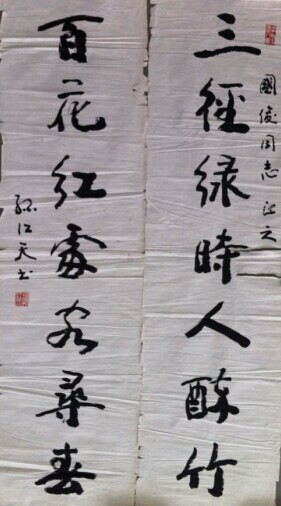 國俊同志正之
三徑綠時人醉竹
百花紅處客尋春
孫江天书